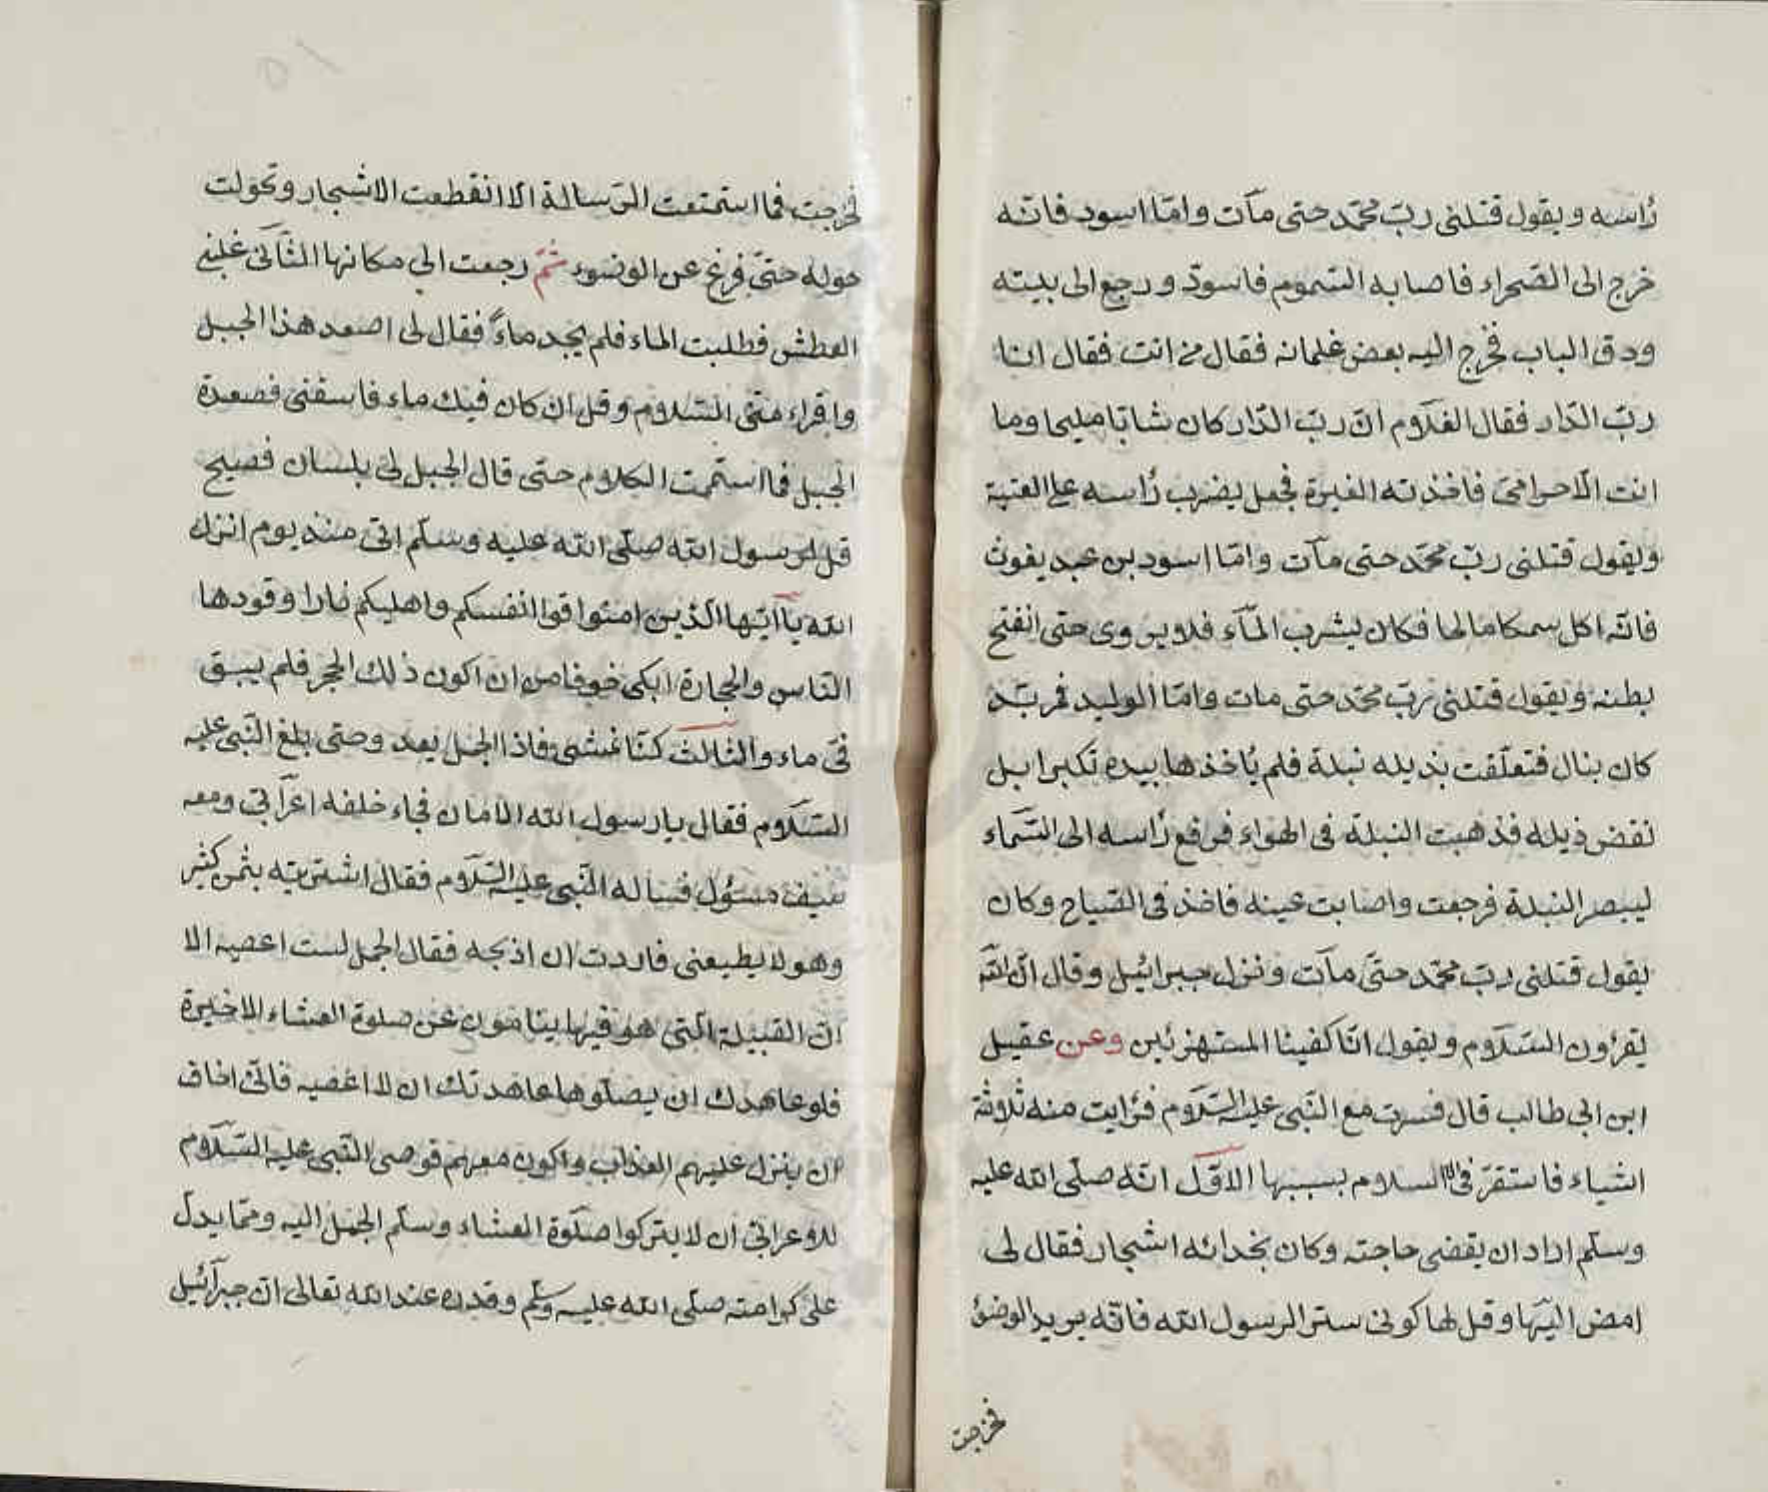 رأسه ويقول قتلنى ربّ محمّد حتى مآت وامّا اسود فانّه
خرج الى الصّحراء فاصابه السّموم فاسودّ ورجع الى بيته
ودق الباب فخرج اليه بعض غلمانه فقال من انت فقال انا
ربّ الدّار فقال الغلام انّ ربّ الدّار كان شابّا مليحا وما
انت الّا حرامىّ فاخذته الغيرة فجعل يضرب رأسه على العتبة
ويقول قتلنى ربّ محمّد حتى مآت وامّا اسود بن عبد يغوث
فانّه اكل سمكا مالحا فكان يشرب المآء فلا يروى حتى انفتح
بطنه ويقول قتلنى ربّ محمّد حتى مات وامّا الوليد فمر بيد
كان بنال فتعلّقت بذيله نبلة فلم يأخذها بيده تكبرا بل
نقض ذيله فذهبت النبلة فى الهواء فرفع رأسه الى السّماء
ليبصر النبلة فرجعت واصابت عينه فاخذ فى الصّياح وكان
يقول قتلنى ربّ محمّد حتىّ مآت ونزل جبرائيل وقال انّ الله
يقرؤن السّلام ويقول انّا كفينا المستهزئين وعن عقيل
ابن ابى طالب قال فسرت مع النّبى عليه السّلام فرأيت منه ثلاثة
اشياء فاستقرّ فى الاسلام بسببها الاوّل انّه صلّى الله عليه
وسلّم اراد ان يقضى حاجته وكان بخدائه اشجار فقال لى
امض اليّها وقل لها كونى سترا لرسول الله فانّه يريد الوضؤ
فخرجت
فخرجت فما استمتعت الرّسالة الا انقطعت الاشجار وتحولت
حوله حتىّ فرغ عن الوضوء ثمّ رجعت الى مكانها الثّانى غلبنى
العطش فطلبت الماء فلم يجد ماءً فقال لى اصعد هذا الجبل
واقراء منّى السّلام وقل ان كان فيك ماء فاسقنى فصعدة
الجبل فما استتممت الكلام حتى قال الجبل لى بلسان فصيح
قل لرسول الله صلّى الله عليه وسلّم انّى منذ يوم انزل
الله يآ ايّها الّذين امنوا قوا انفسكم واهليكم نارا وقودها
النّاس والحجارة ابكى خوفا من ان اكون ذلك الحجر فلم يبق
فىّ ماء والثالث كنّا نمشى فاذا الجمل يعد وحتى بلغ النّبى عليه
السّلام فقال يا رسول الله الامان فجاء خلفه اعرآبى ومعه
سيف مسئول فساله النّبى عليه السّلام فقال اشتريته بثمن كثير
وهو لا يطيعنى فاردت ان اذبحه فقال الجمل لست اعصيه الا
انّ القبيلة الّتى هو فيها ينامون عن صلوة العشاء الاخيرة
فلو عاهدك ان يصلّوها عاهدتك ان لا اعصيه فانّى اخاف
ان ينزل عليهم العذاب واكون معهم فوصى النّبى عليه السّلام
للاعرابىّ ان لا يتركوا صلوة العشاء وسلّم الجمل اليه وممّا يدلّ
على كرامته صلّى الله عليه وسلّم وقدره عند الله تعالى انّ جبرآئيل